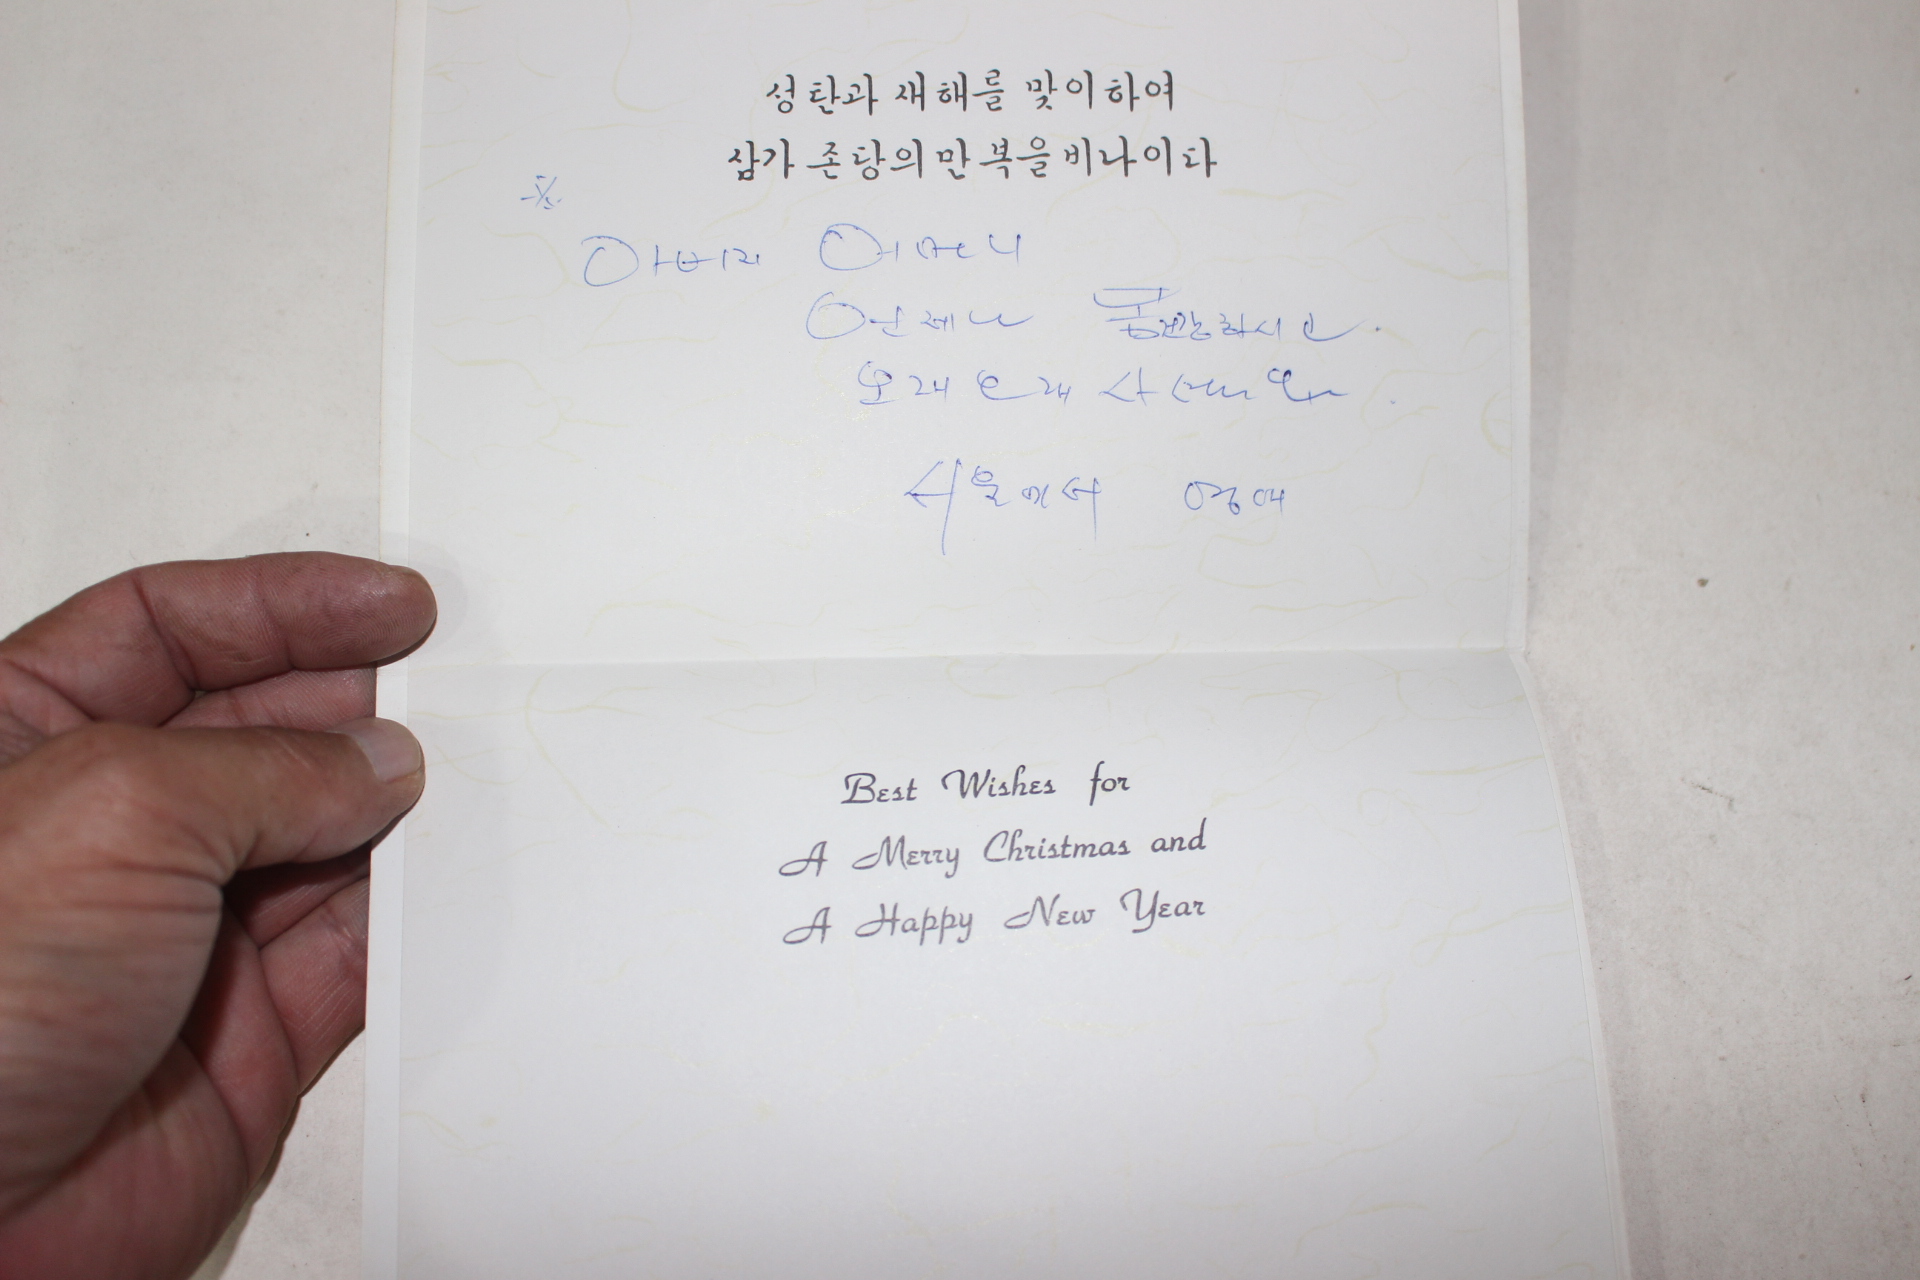 성탄과 새해를 맞이하여
삼가 존당의 만복을 비나이다
아버지 어머니
언제나 건강하시고.
오래 오래 사세요.
서울에서 영애
Best Wishes for
A Merry Christmas and
A Happy New Year